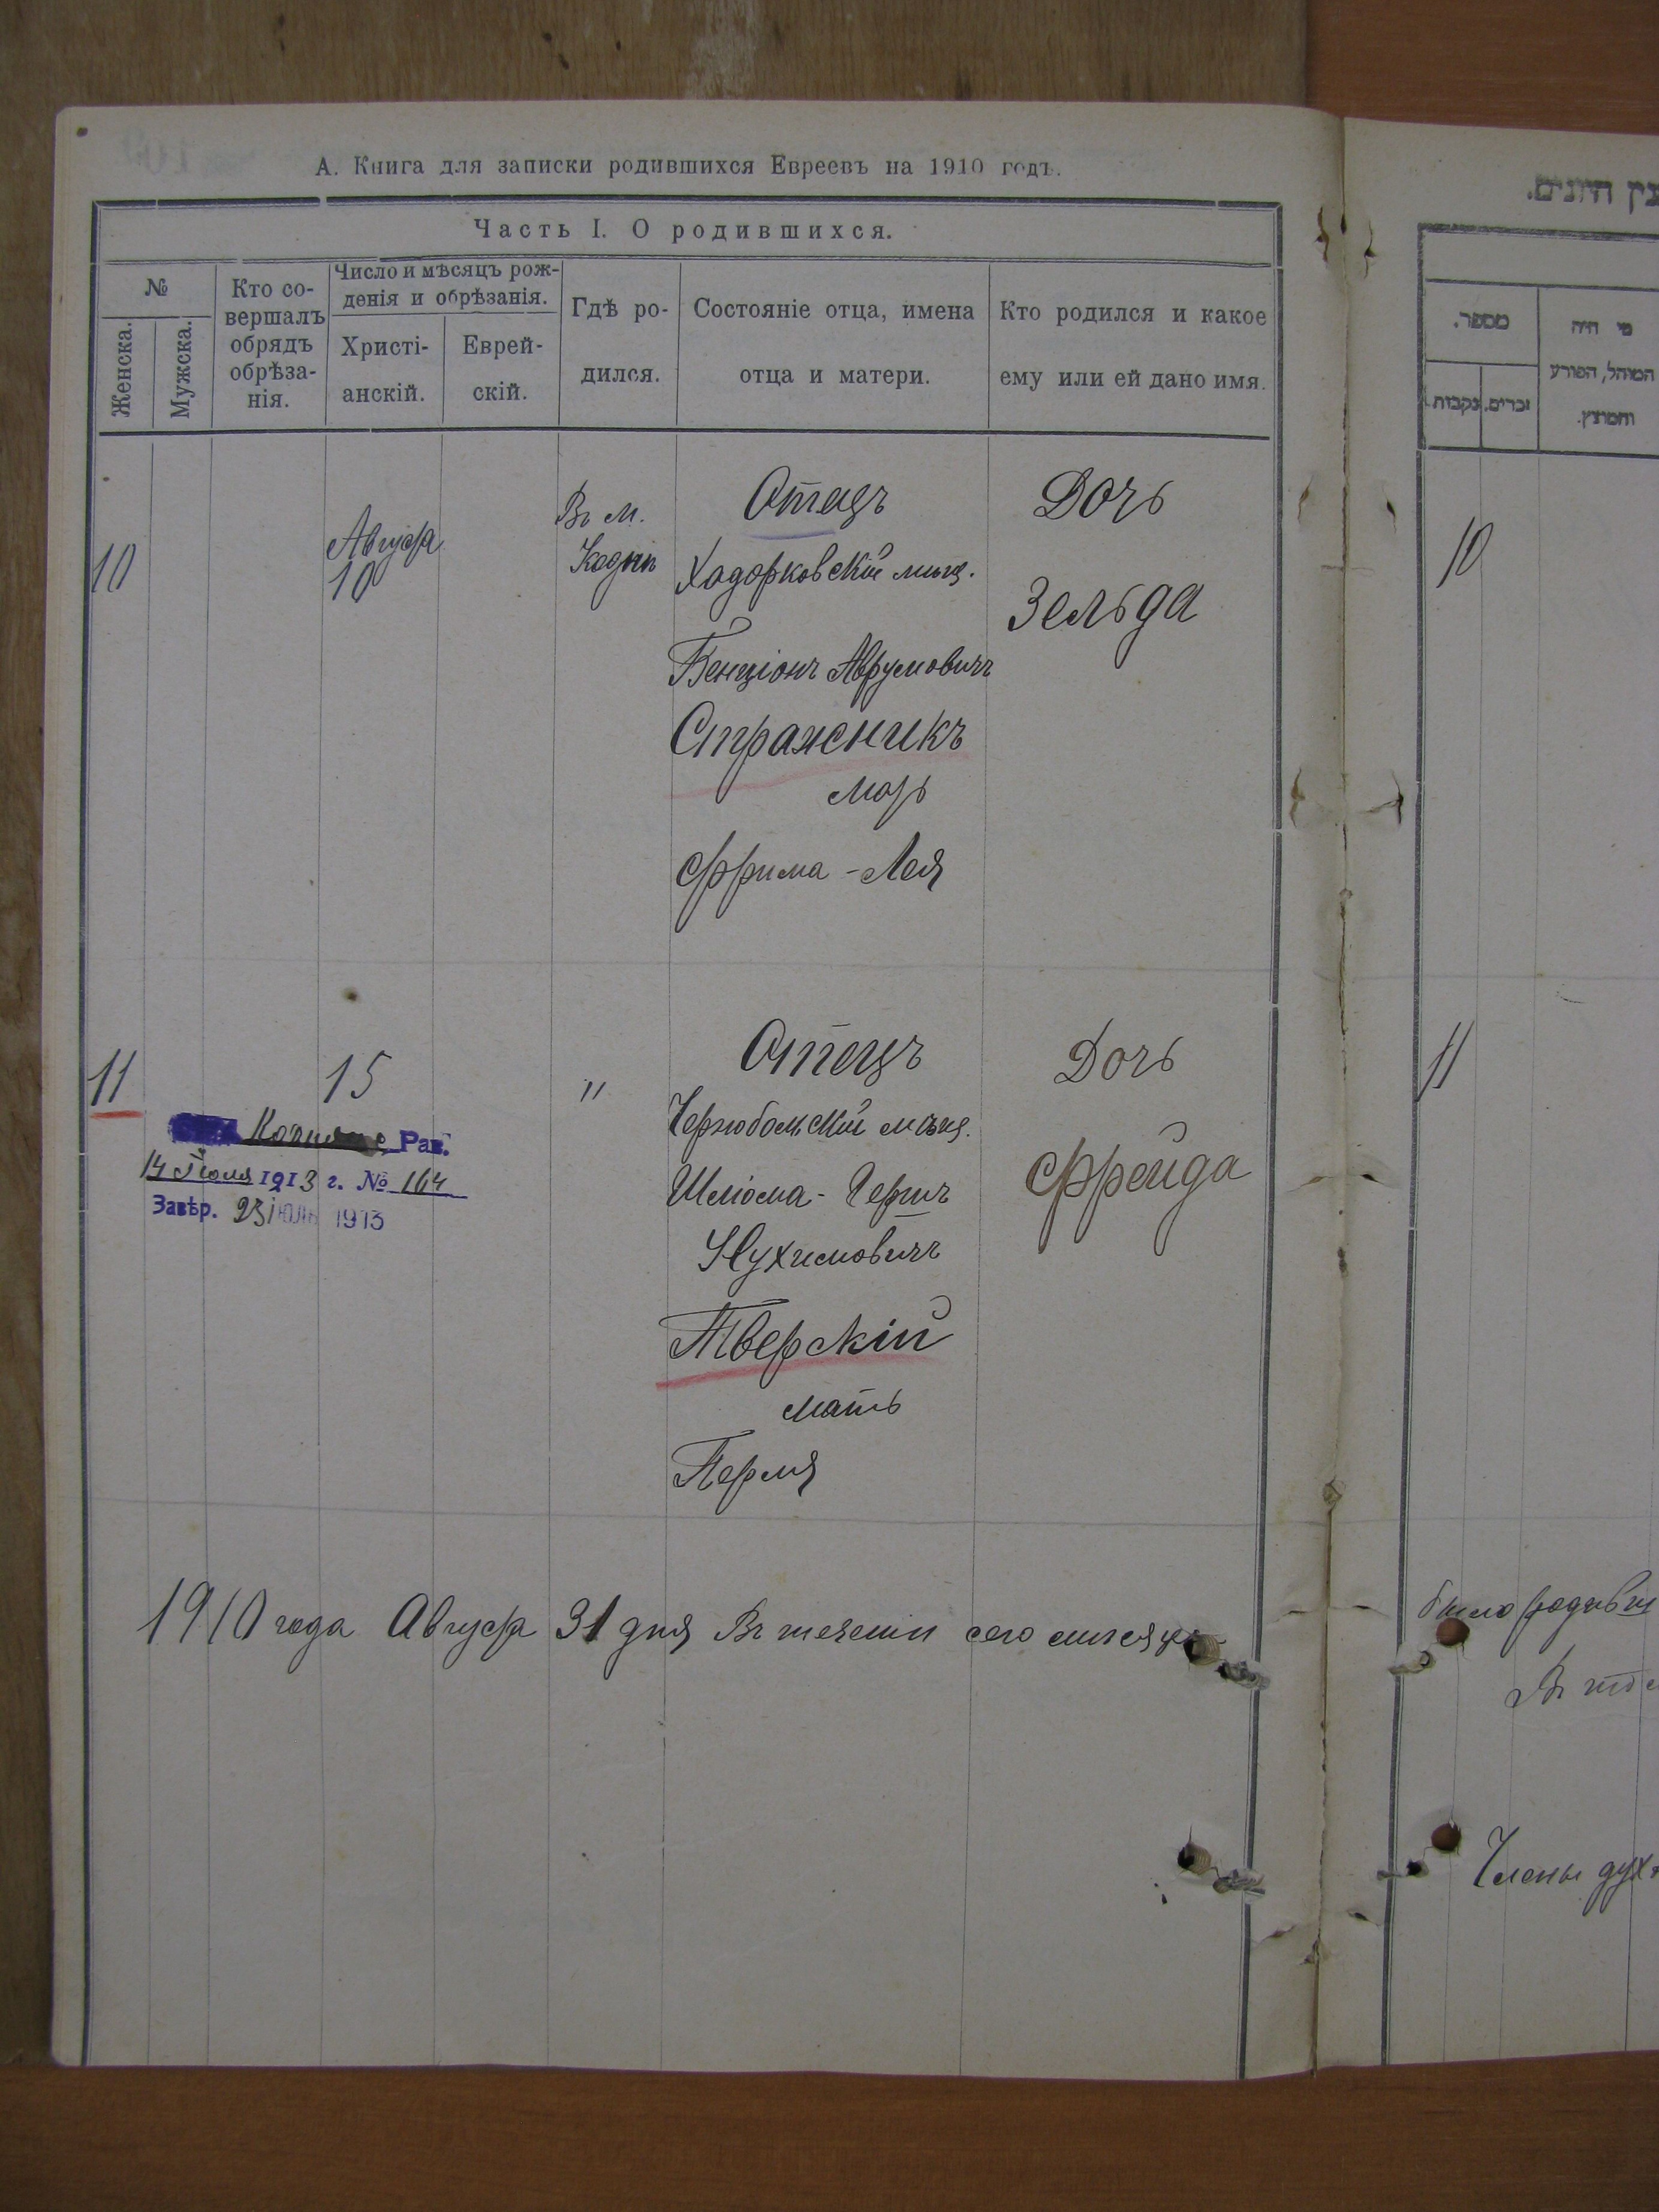 А. Книга для записки родившихся Евреевъ на 1910 годъ.
Часть I. О родившихся.
№
Женска.
Мужска.
Кто со-
вершалъ
обрядъ
обрѣза-
нія.
Число и мѣсяцъ рож-
денія и обрѣзанія.
Христі-
анскій.
Еврей-
скій.
Гдѣ ро-
дился.
Состояніе отца, имена
отца и матери.
Кто родился и какое
ему или ей дано имя.
10
Августа
10
Въ м.
Кодни
Отецъ
Ходорковскій мѣщ.
Бенціонъ Аврумовичъ
Стражникъ
мать
Фрима-Лея
Дочь
Зельда
11
15
"
Отецъ
Чернобольскій мѣщ.
Шліома-Герш
Нухимовичъ
Тверскій
мать
Перля
Дочь
Фрейда
Рав.
14 Іюля 1913 г. № 164
Завѣр. 23 ІЮЛЬ 1913
1910 года Августа 31 дня Въ теченіи сего мѣсяца
מספר.
זכרים.
נקבות
מי היה
המוהל, הפורע
והמוצץ.
10
11
было родивш
Члены дух